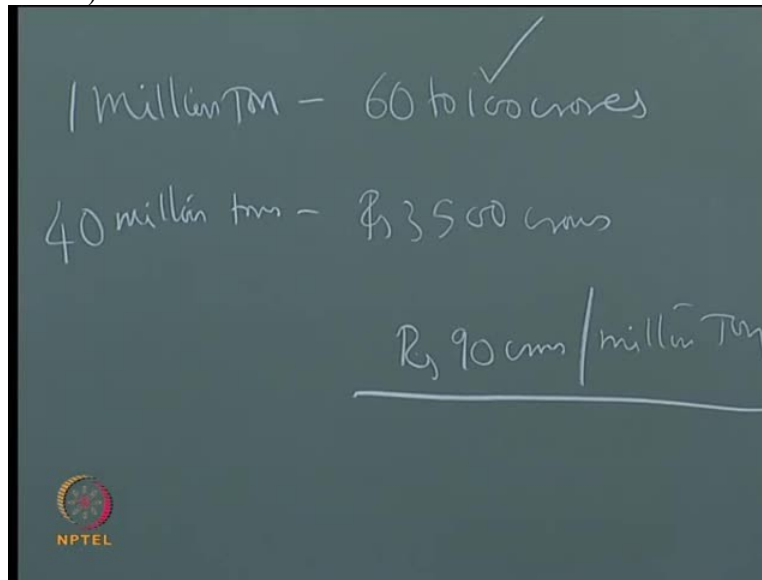 1 Million Ton - 60 to 100 crores
40 million tons - Rs 3500 crores
Rs 90 crores / million Ton
NPTEL